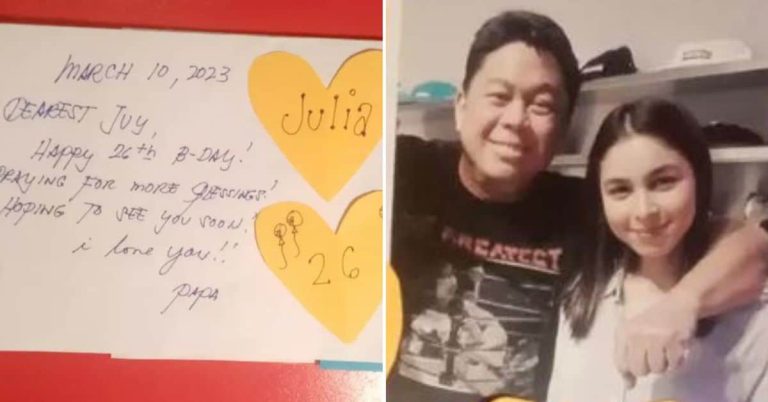 MARCH 10, 2023
DEAREST JUY,
HAPPY 26th B-DAY!
PRAYING FOR MORE BLESSINGS!
HOPING TO SEE YOU SOON!
i love you!!
PAPA
Julia
26
GREATEST